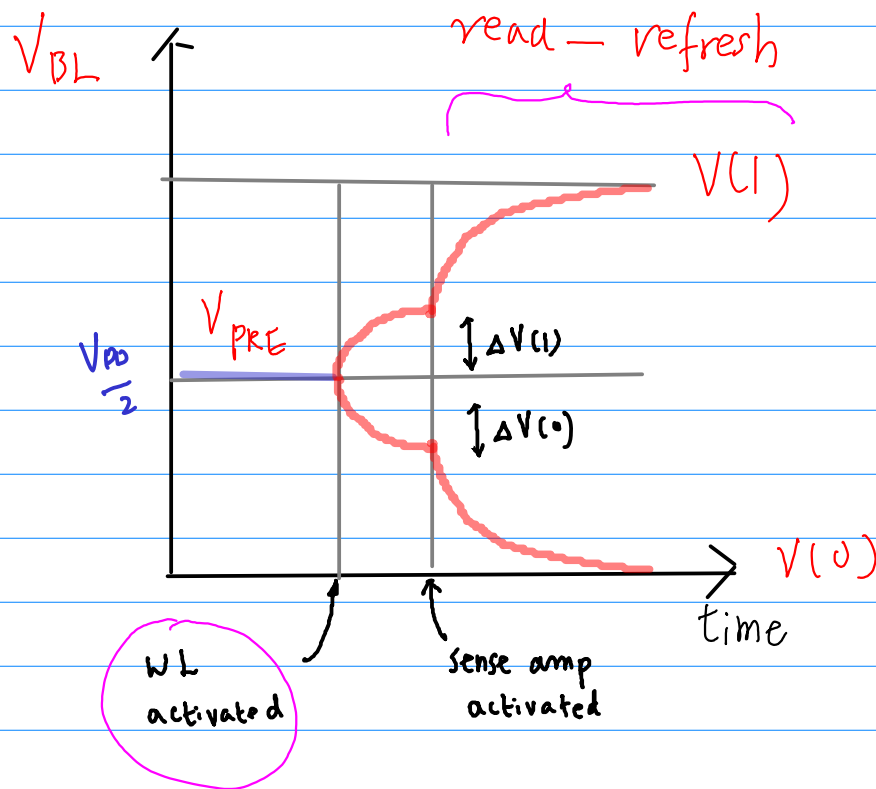 read – refresh
V_BL
V(1)
V_PRE
V_DD/2
ΔV(1)
ΔV(0)
V(0)
time
WL
activated
sense amp
activated